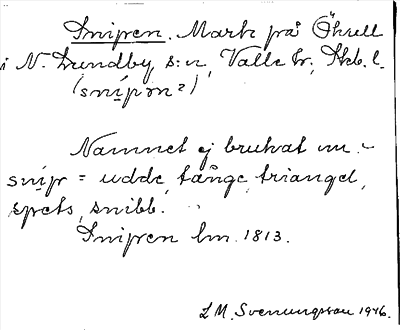 Snipen. Mark på Öhrell
i N. Lundby s:n, Valle hr, Skb. l.
(snípən²)
Namnet ej brukat nu. -
snip = udde, tånge, triangel,
spets, snibb.
Snipen lm. 1813.
L M. Svenungsson 1946.